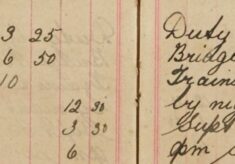 3 25 Duty
6 50 Bridge
10 Train
12 30 by ni
3 30 Sept
6 pm s